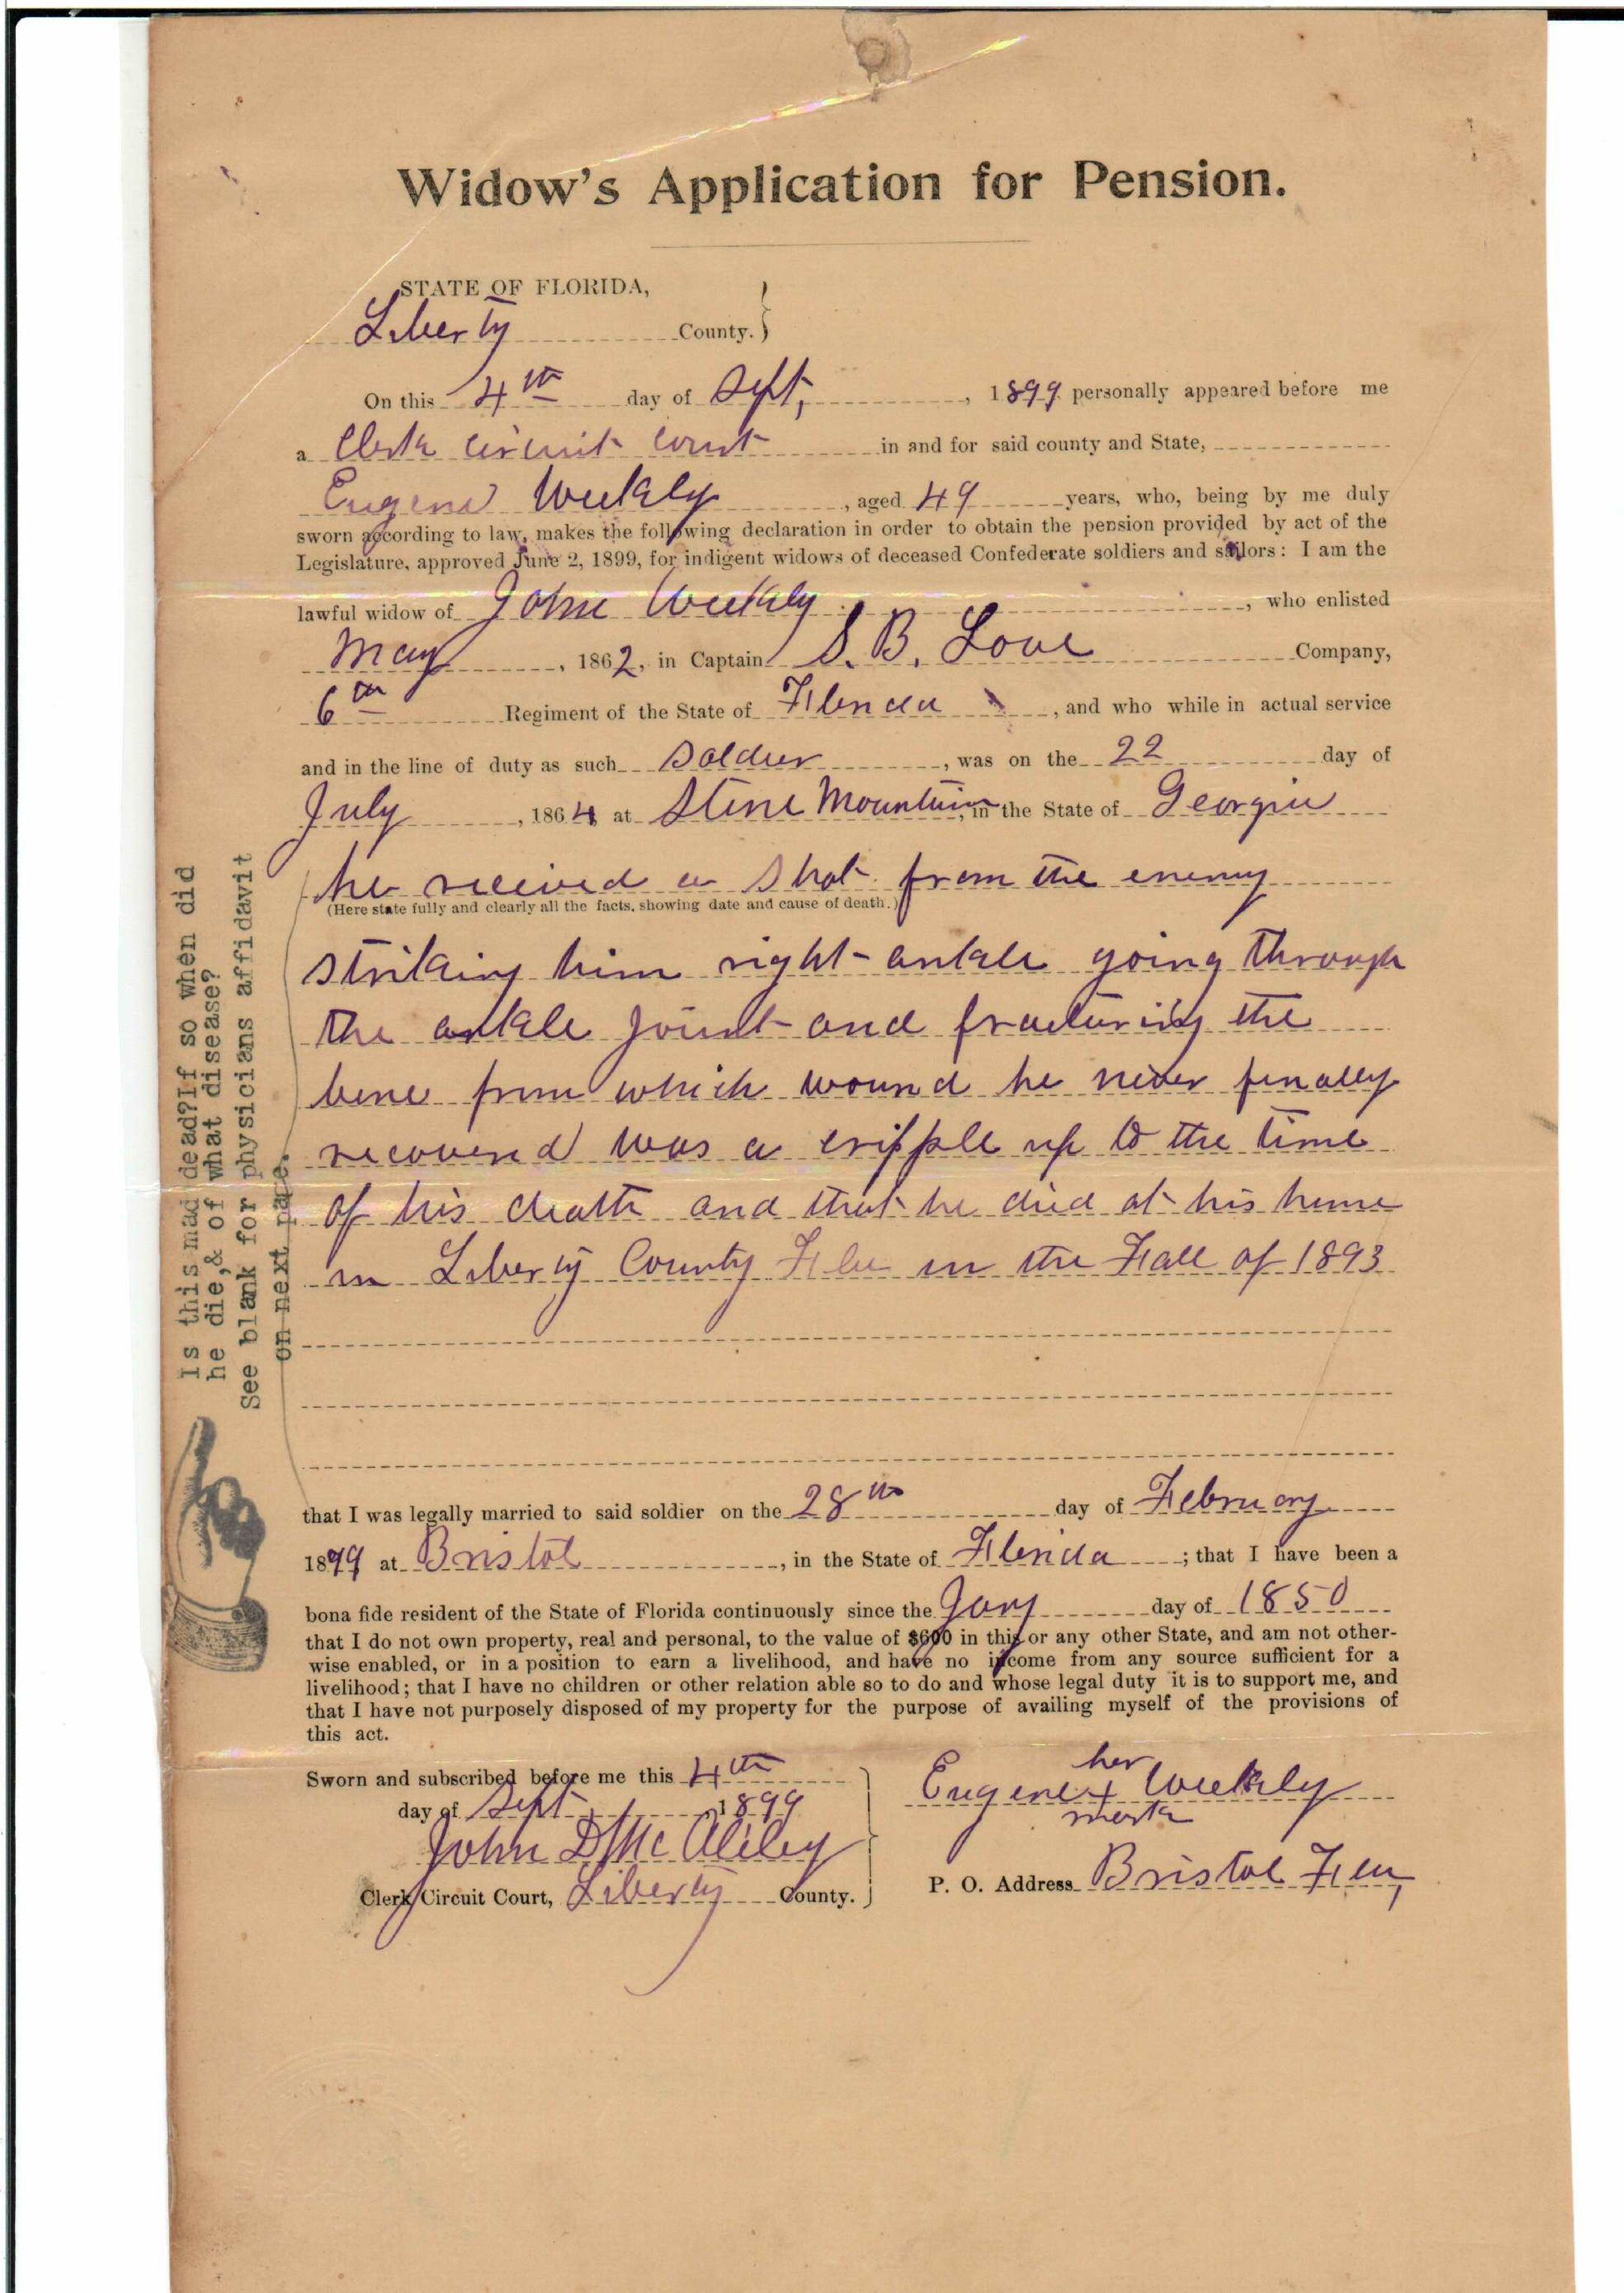 Widow's Application for Pension.
STATE OF FLORIDA,
Liberty County. }
On this 4th day of Sept, , 1899 personally appeared before me
a Clerk Circuit Court in and for said county and State,
Eugene Weekley , aged 49 years, who, being by me duly
sworn according to law, makes the following declaration in order to obtain the pension provided by act of the
Legislature, approved June 2, 1899, for indigent widows of deceased Confederate soldiers and sailors: I am the
lawful widow of John Weekley , who enlisted
May , 1862, in Captain S. B. Love Company,
6th Regiment of the State of Florida , and who while in actual service
and in the line of duty as such Soldier , was on the 22 day of
July , 1864, at Stone Mountain, in the State of Georgia
he received a Shot from the enemy
(Here state fully and clearly all the facts, showing date and cause of death.)
striking him right ankle going through
the ankle joint and fracturing the
bone from which wound he never finally
recovered was a cripple up to the time
of his death and that he died at his home
in Liberty County Fla in the Fall of 1893
Is this mad dead?If so when did
he die,& of what disease?
See blank for physicians affidavit
on next page.
that I was legally married to said soldier on the 28th day of February
18 at Bristol , in the State of Florida ; that I have been a
bona fide resident of the State of Florida continuously since the Jany day of 1850
that I do not own property, real and personal, to the value of $600 in this or any other State, and am not other-
wise enabled, or in a position to earn a livelihood, and have no income from any source sufficient for a
livelihood; that I have no children or other relation able so to do and whose legal duty it is to support me, and
that I have not purposely disposed of my property for the purpose of availing myself of the provisions of
this act.
Sworn and subscribed before me this 4th
day of Sept 1899
John D
Clerk Circuit Court, Liberty County.
her
Eugene x Weekley
mark
P. O. Address Bristol Fla,